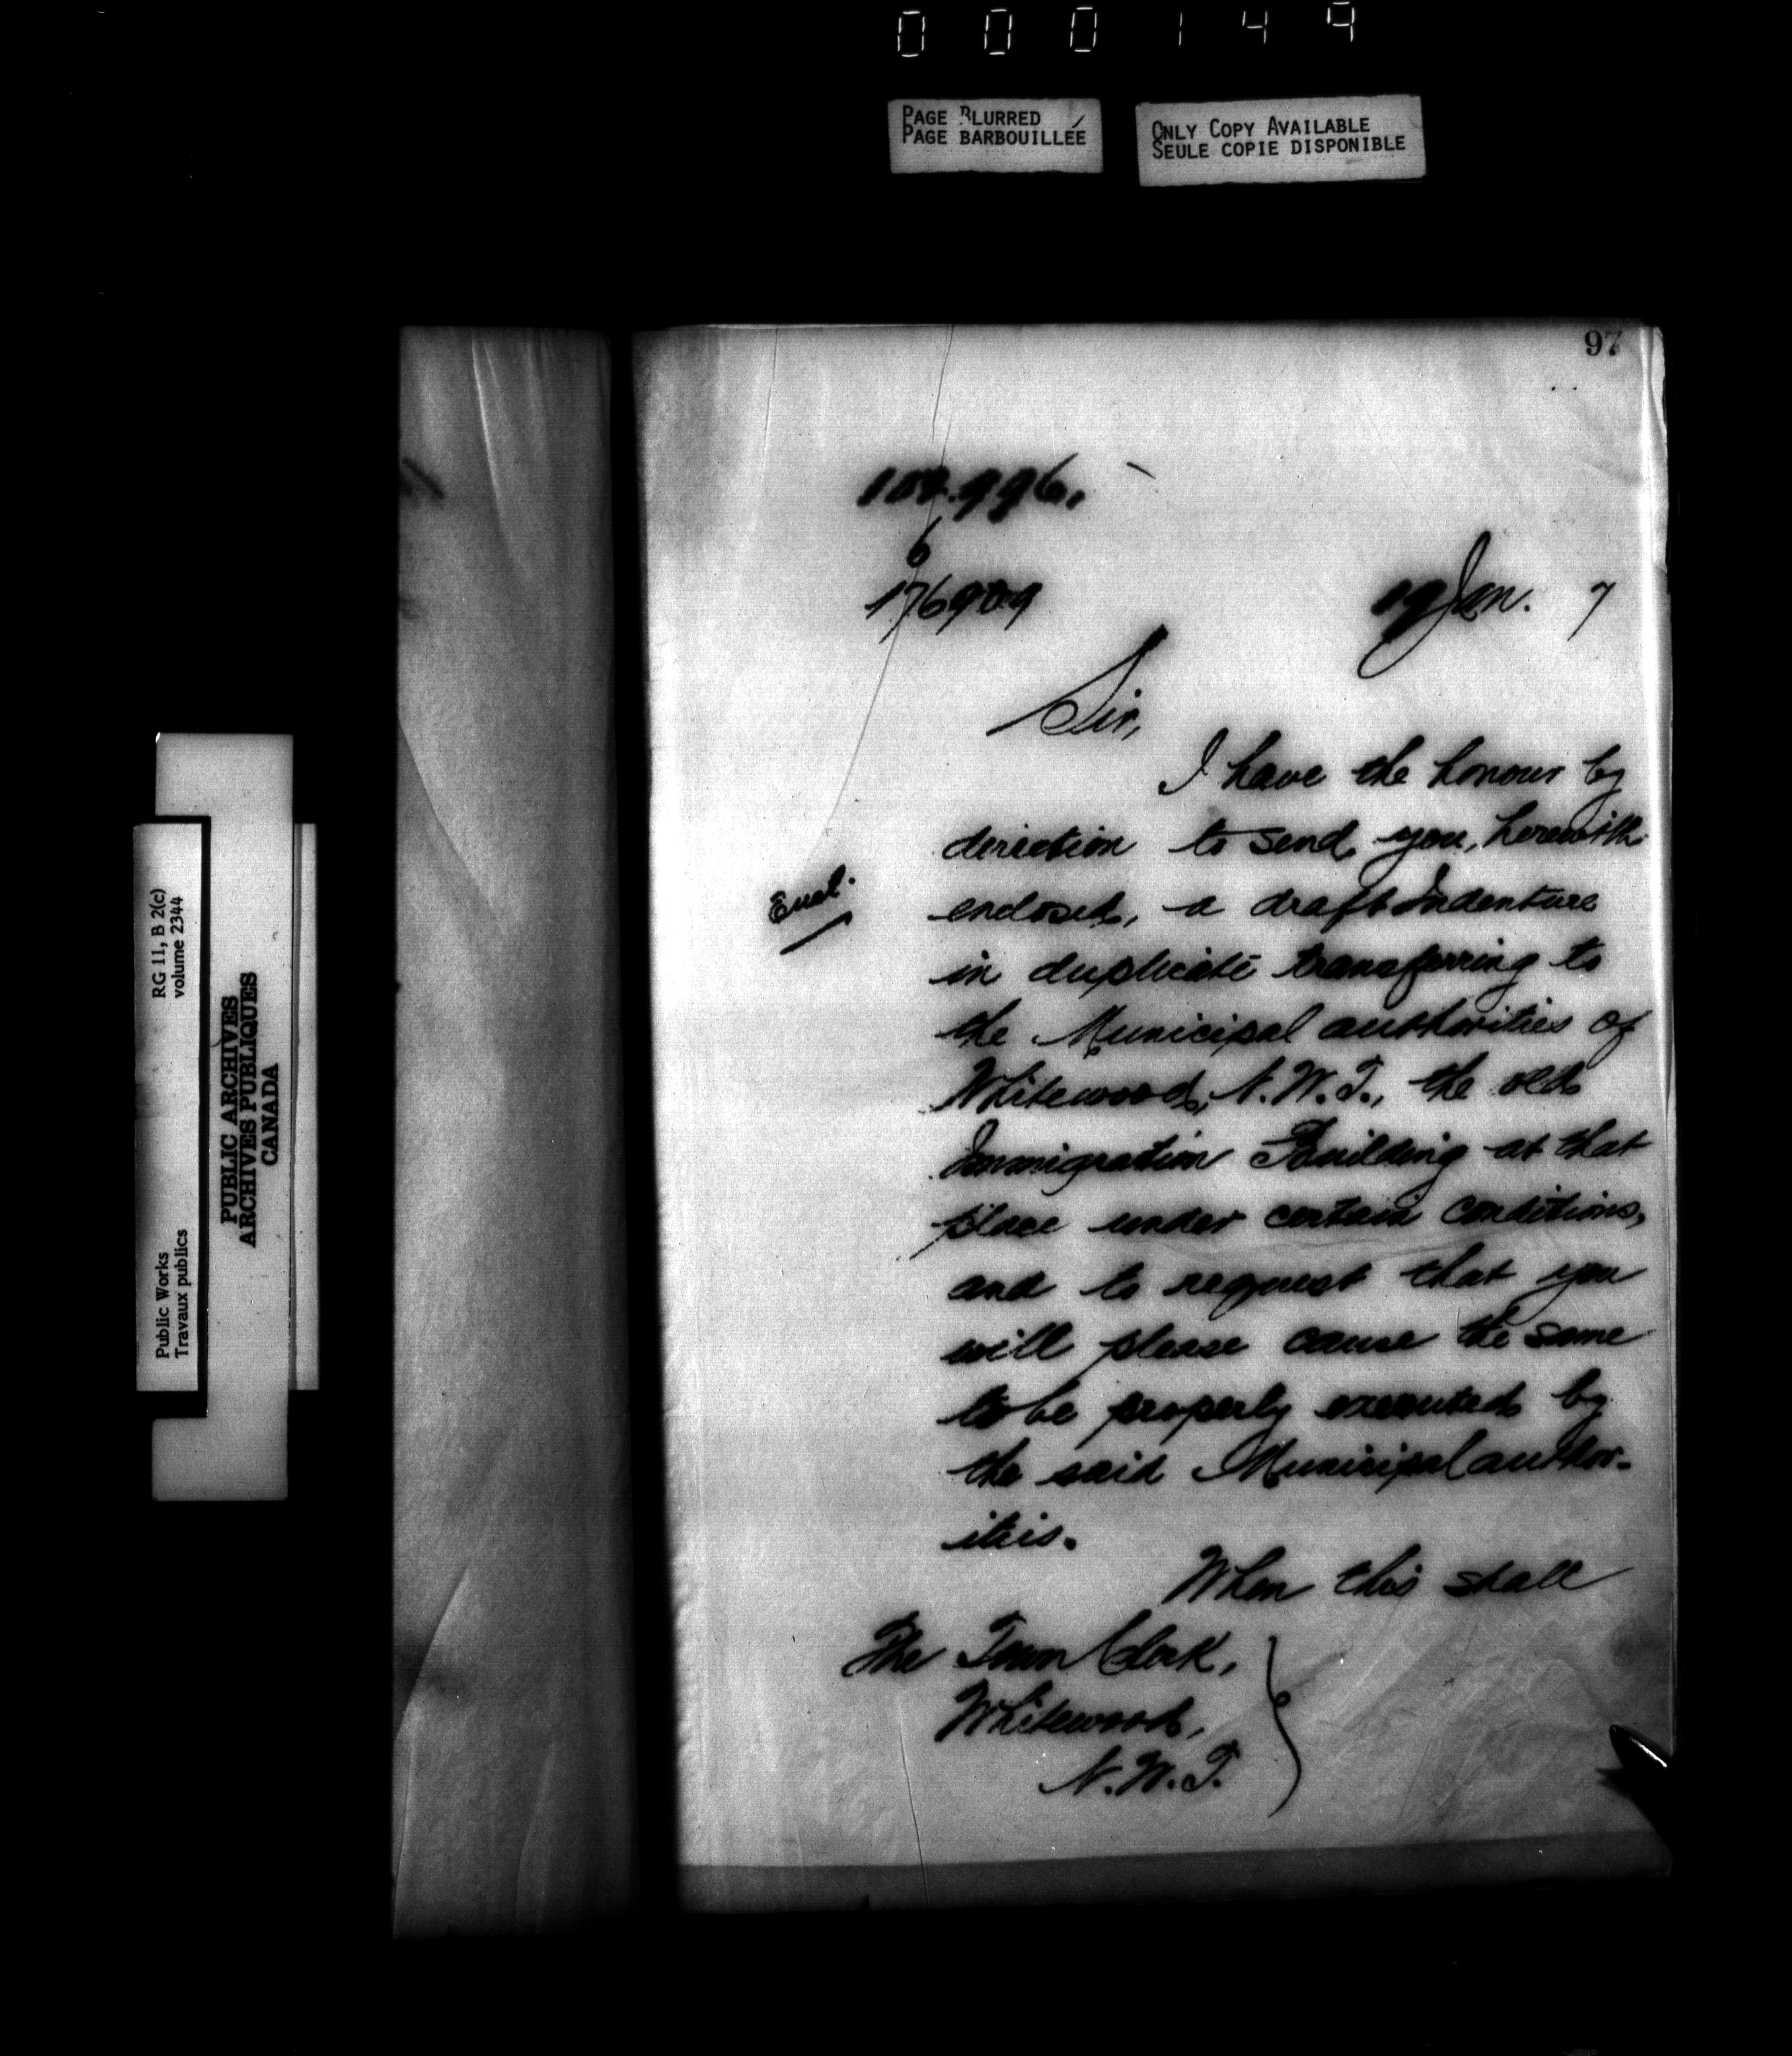 000149
PAGE BLURRED
PAGE BARBOUILLÉE
ONLY COPY AVAILABLE
SEULE COPIE DISPONIBLE
RG 11, B 2(c)
volume 2344
Public Works
Travaux publics
PUBLIC ARCHIVES
ARCHIVES PUBLIQUES
CANADA
97
6
176909
19 Jan. 7
Sir,
I have the honour by
direction to send you, herewith
Encl.
enclosed, a draft Indenture
in duplicate transferring to
the Municipal authorities of
Whitewood, N.W.T., the old
Immigration Building at that
place under certain conditions,
and to request that you
will please cause the same
to be properly executed by
the said Municipal author-
ities.
When this shall
The Town Clerk,
Whitewood,
N.W.T.